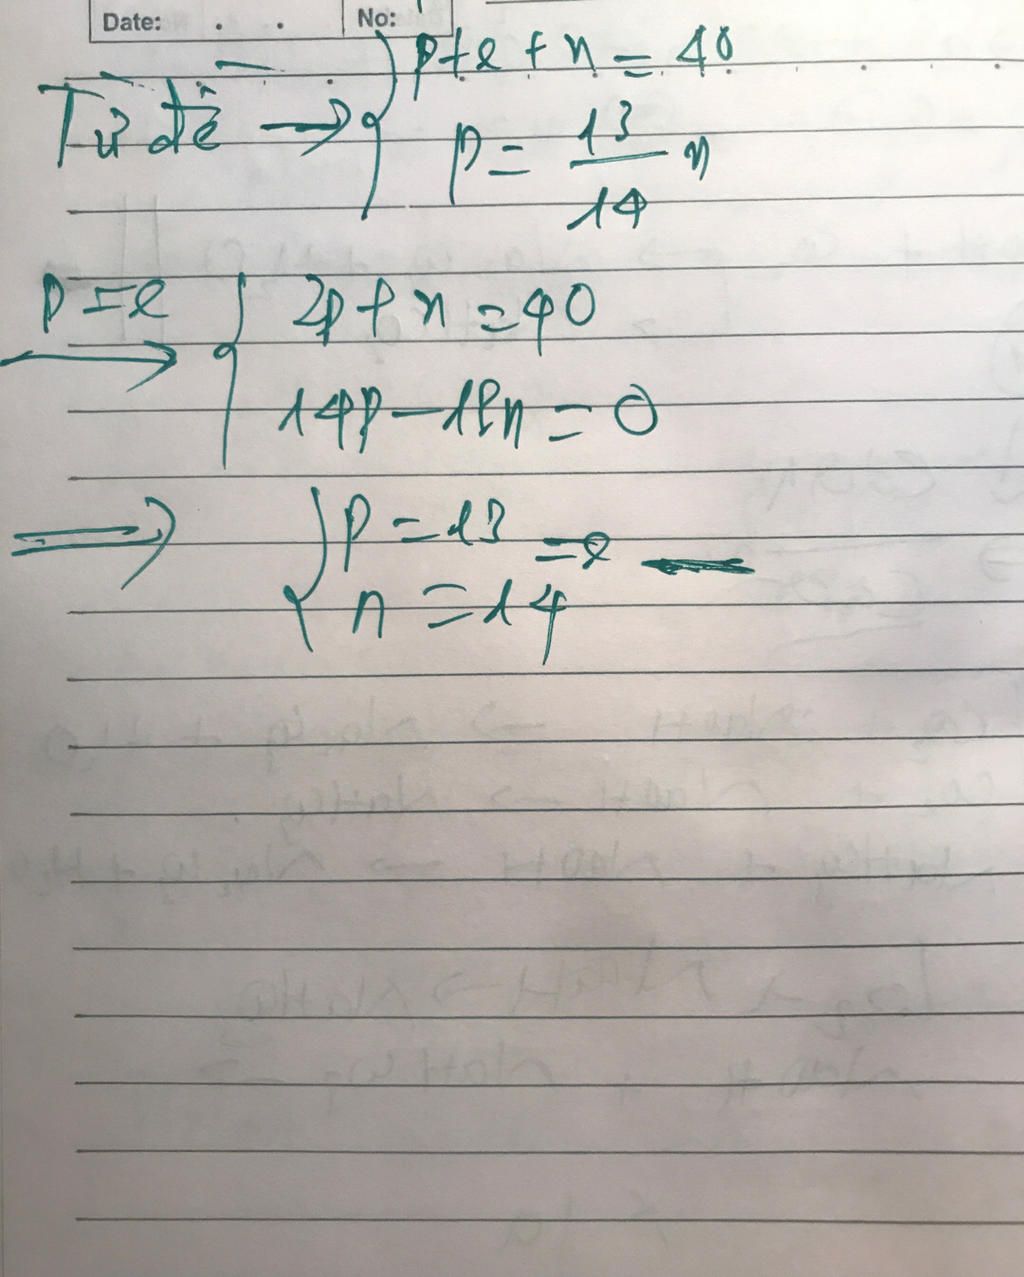 Date: . . No:
p+e+n=40
Từ đề → { p = 13/14 n
p=e → { 2p+n=40
14p-13n=0
⇒ { p=13 =e
n=14